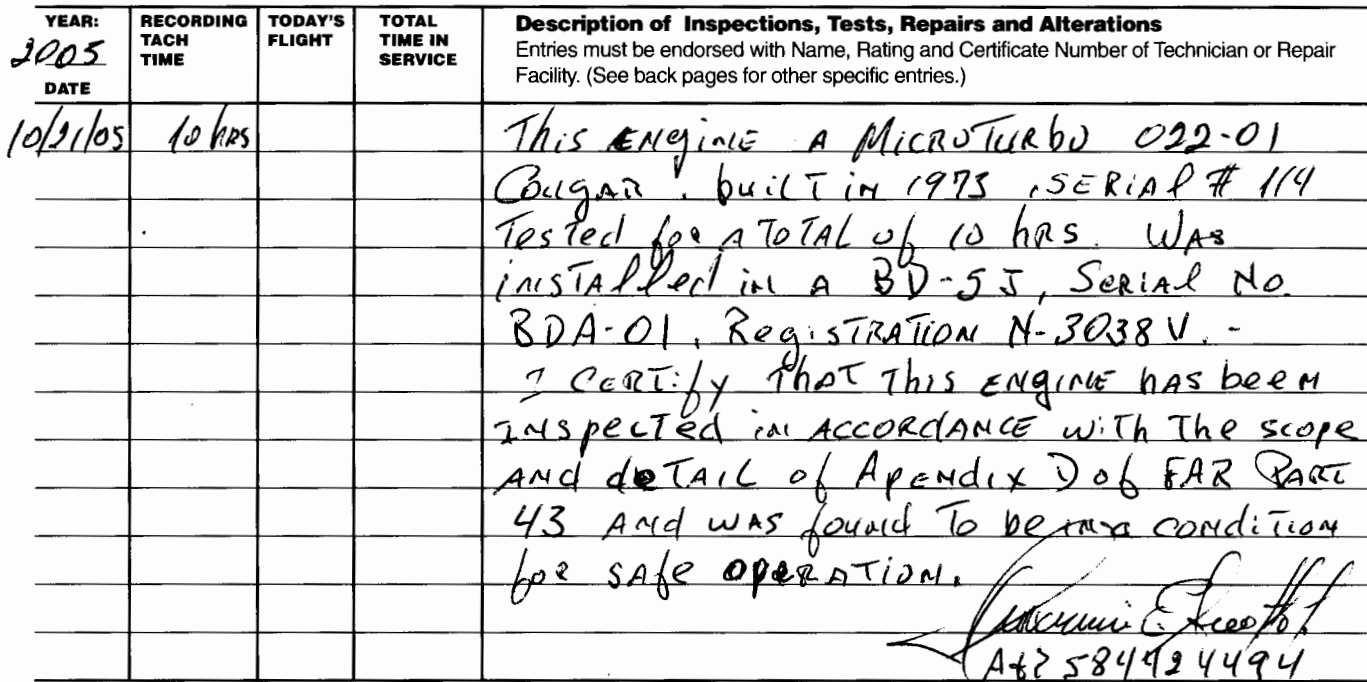 YEAR: RECORDING TACH TIME TODAY'S FLIGHT TOTAL TIME IN SERVICE Description of Inspections, Tests, Repairs and Alterations
2005 Entries must be endorsed with Name, Rating and Certificate Number of Technician or Repair
DATE Facility. (See back pages for other specific entries.)
10/21/05 10 hRS This ENgiNE A MicROTURbo 022-01
COUgAR, builT iN 1973, SERiAl # 114
TesTed foR A TOTAL of 10 hRS. WAS
iNSTAlled iN A BD-5J, SeRiAl No.
BDA-01, RegiSTRATION N-3038V. -
I CeRTify ThAT This ENgiNE hAS beeN
INSpecTed iN ACCORdANCE wiTh The scope
ANd deTAIL of ApeNdix D of FAR PART
43 ANd wAS fouNd To be iN A coNdiTioN
foR SAfe OpeRATiON.
A&P 584924494